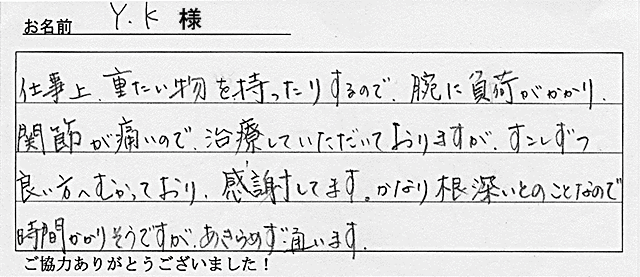 お名前 Y.K 様
仕事上、重たい物を持ったりするので、腕に負荷がかかり、
関節が痛いので、治療していただいておりますが、すこしずつ
良い方へむかっており、感謝してます。かなり根深いとのことなので
時間かかりそうですが、あきらめず通います。
ご協力ありがとうございました！